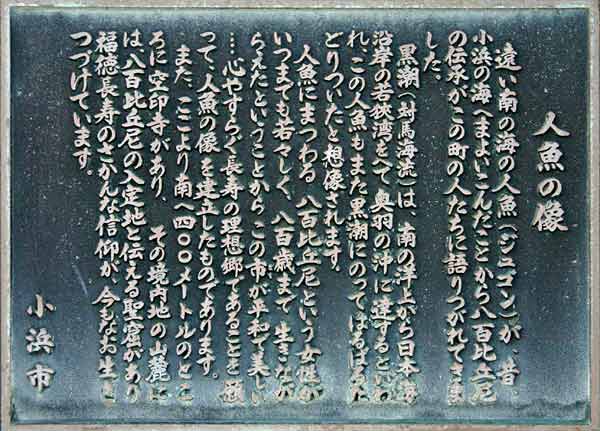 人魚の像
遠い南の海の人魚(ジュゴン)が、昔、
小浜の海へまよいこんだことから八百比丘尼
の伝承がこの町の人たちに語りつがれてきま
した。
黒潮(対馬海流)は、南の洋上から日本海
沿岸の若狭湾をへて奥羽の沖に達するといわ
れ、この人魚もまた黒潮にのってはるばるた
どりついたと想像されます。
人魚にまつわる八百比丘尼という女性が
いつまでも若々しく、八百歳まで生きなが
らえたということから、この市が平和で美しい
……心やすらぐ長寿の理想郷であることを願
って、人魚の像を建立したものであります。
また、ここより南へ四〇〇メートルのとこ
ろに空印寺があり、その境内地の山麓に
は八百比丘尼の入定地と伝える聖窟があり
福徳長寿のさかんな信仰が、今もなお生き
つづけています。
小浜市